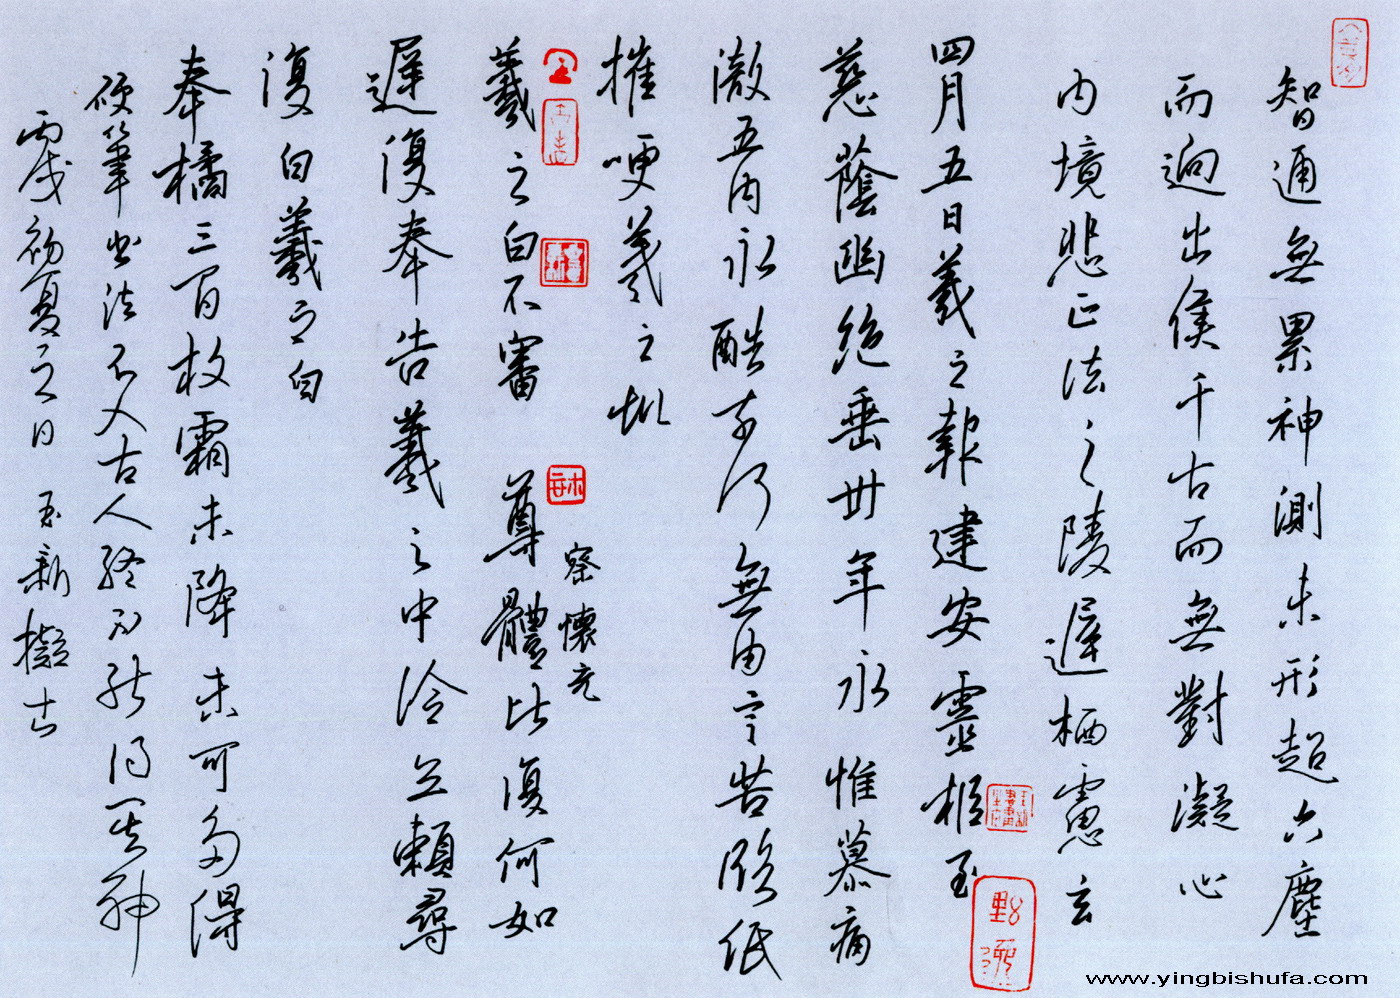 智通無累神測未形超六塵
而迥出隻千古而無對凝心
內境悲正法之陵遲栖慮玄
四月五日羲之報建安靈柩至
慈蔭幽絕垂卅年永惟慕痛
徹五內永酷奈何無由言苦臨紙
摧哽羲之
羲之白不審尊體比復何如
察懷充
遲復奉告羲之中冷無賴尋
復白羲之白
奉橘三百枚霜未降未可多得
硬筆書法不入古人終不能得其神
丙戌初夏之日玉新擬古
www.yingbishufa.com